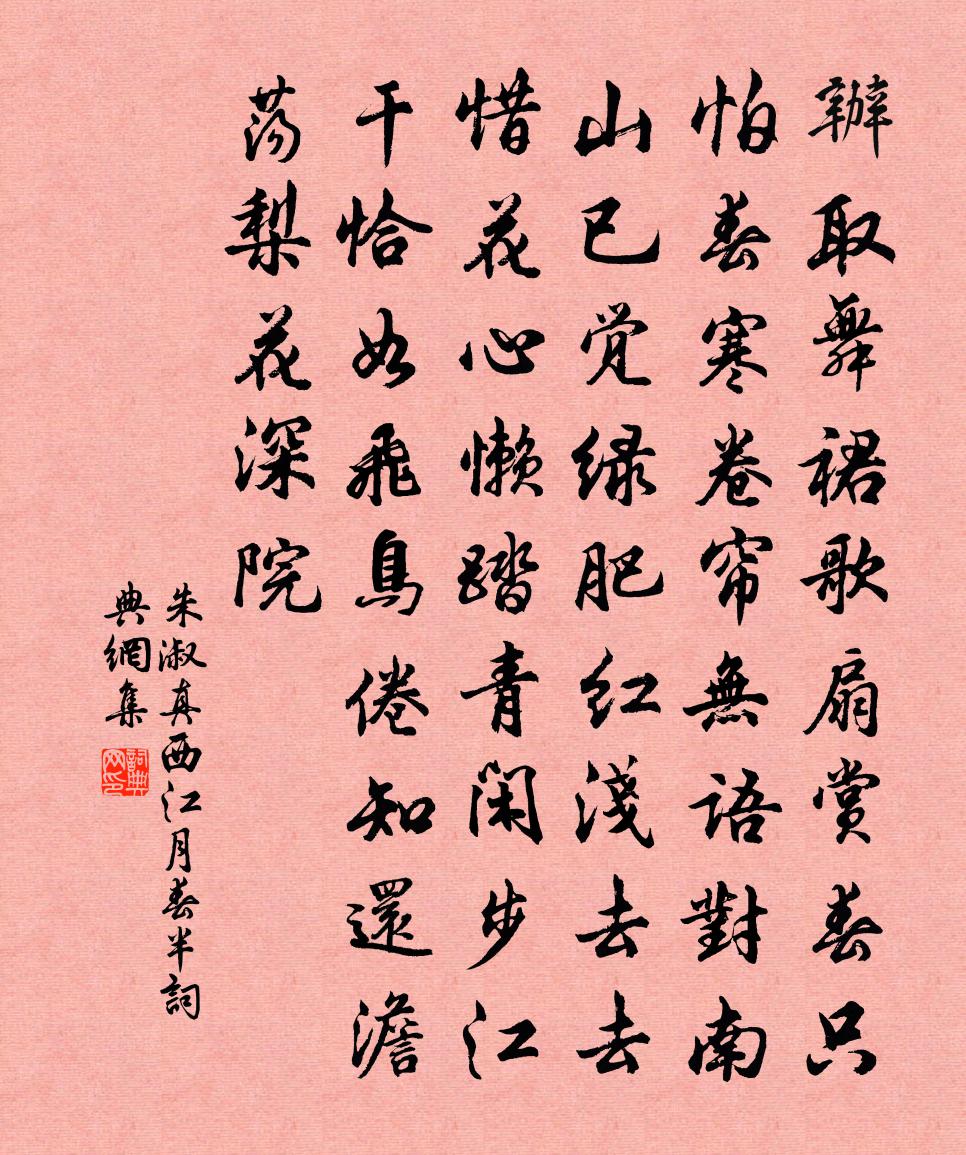 辦取舞裙歌扇賞春只
怕春寒卷帘無語對南
山已觉绿肥红淺去去
惜花心懶踏青闲步江
干恰如飛鳥倦知還澹
荡梨花深院
朱淑真西江月春半詞
典網集
詞典网印